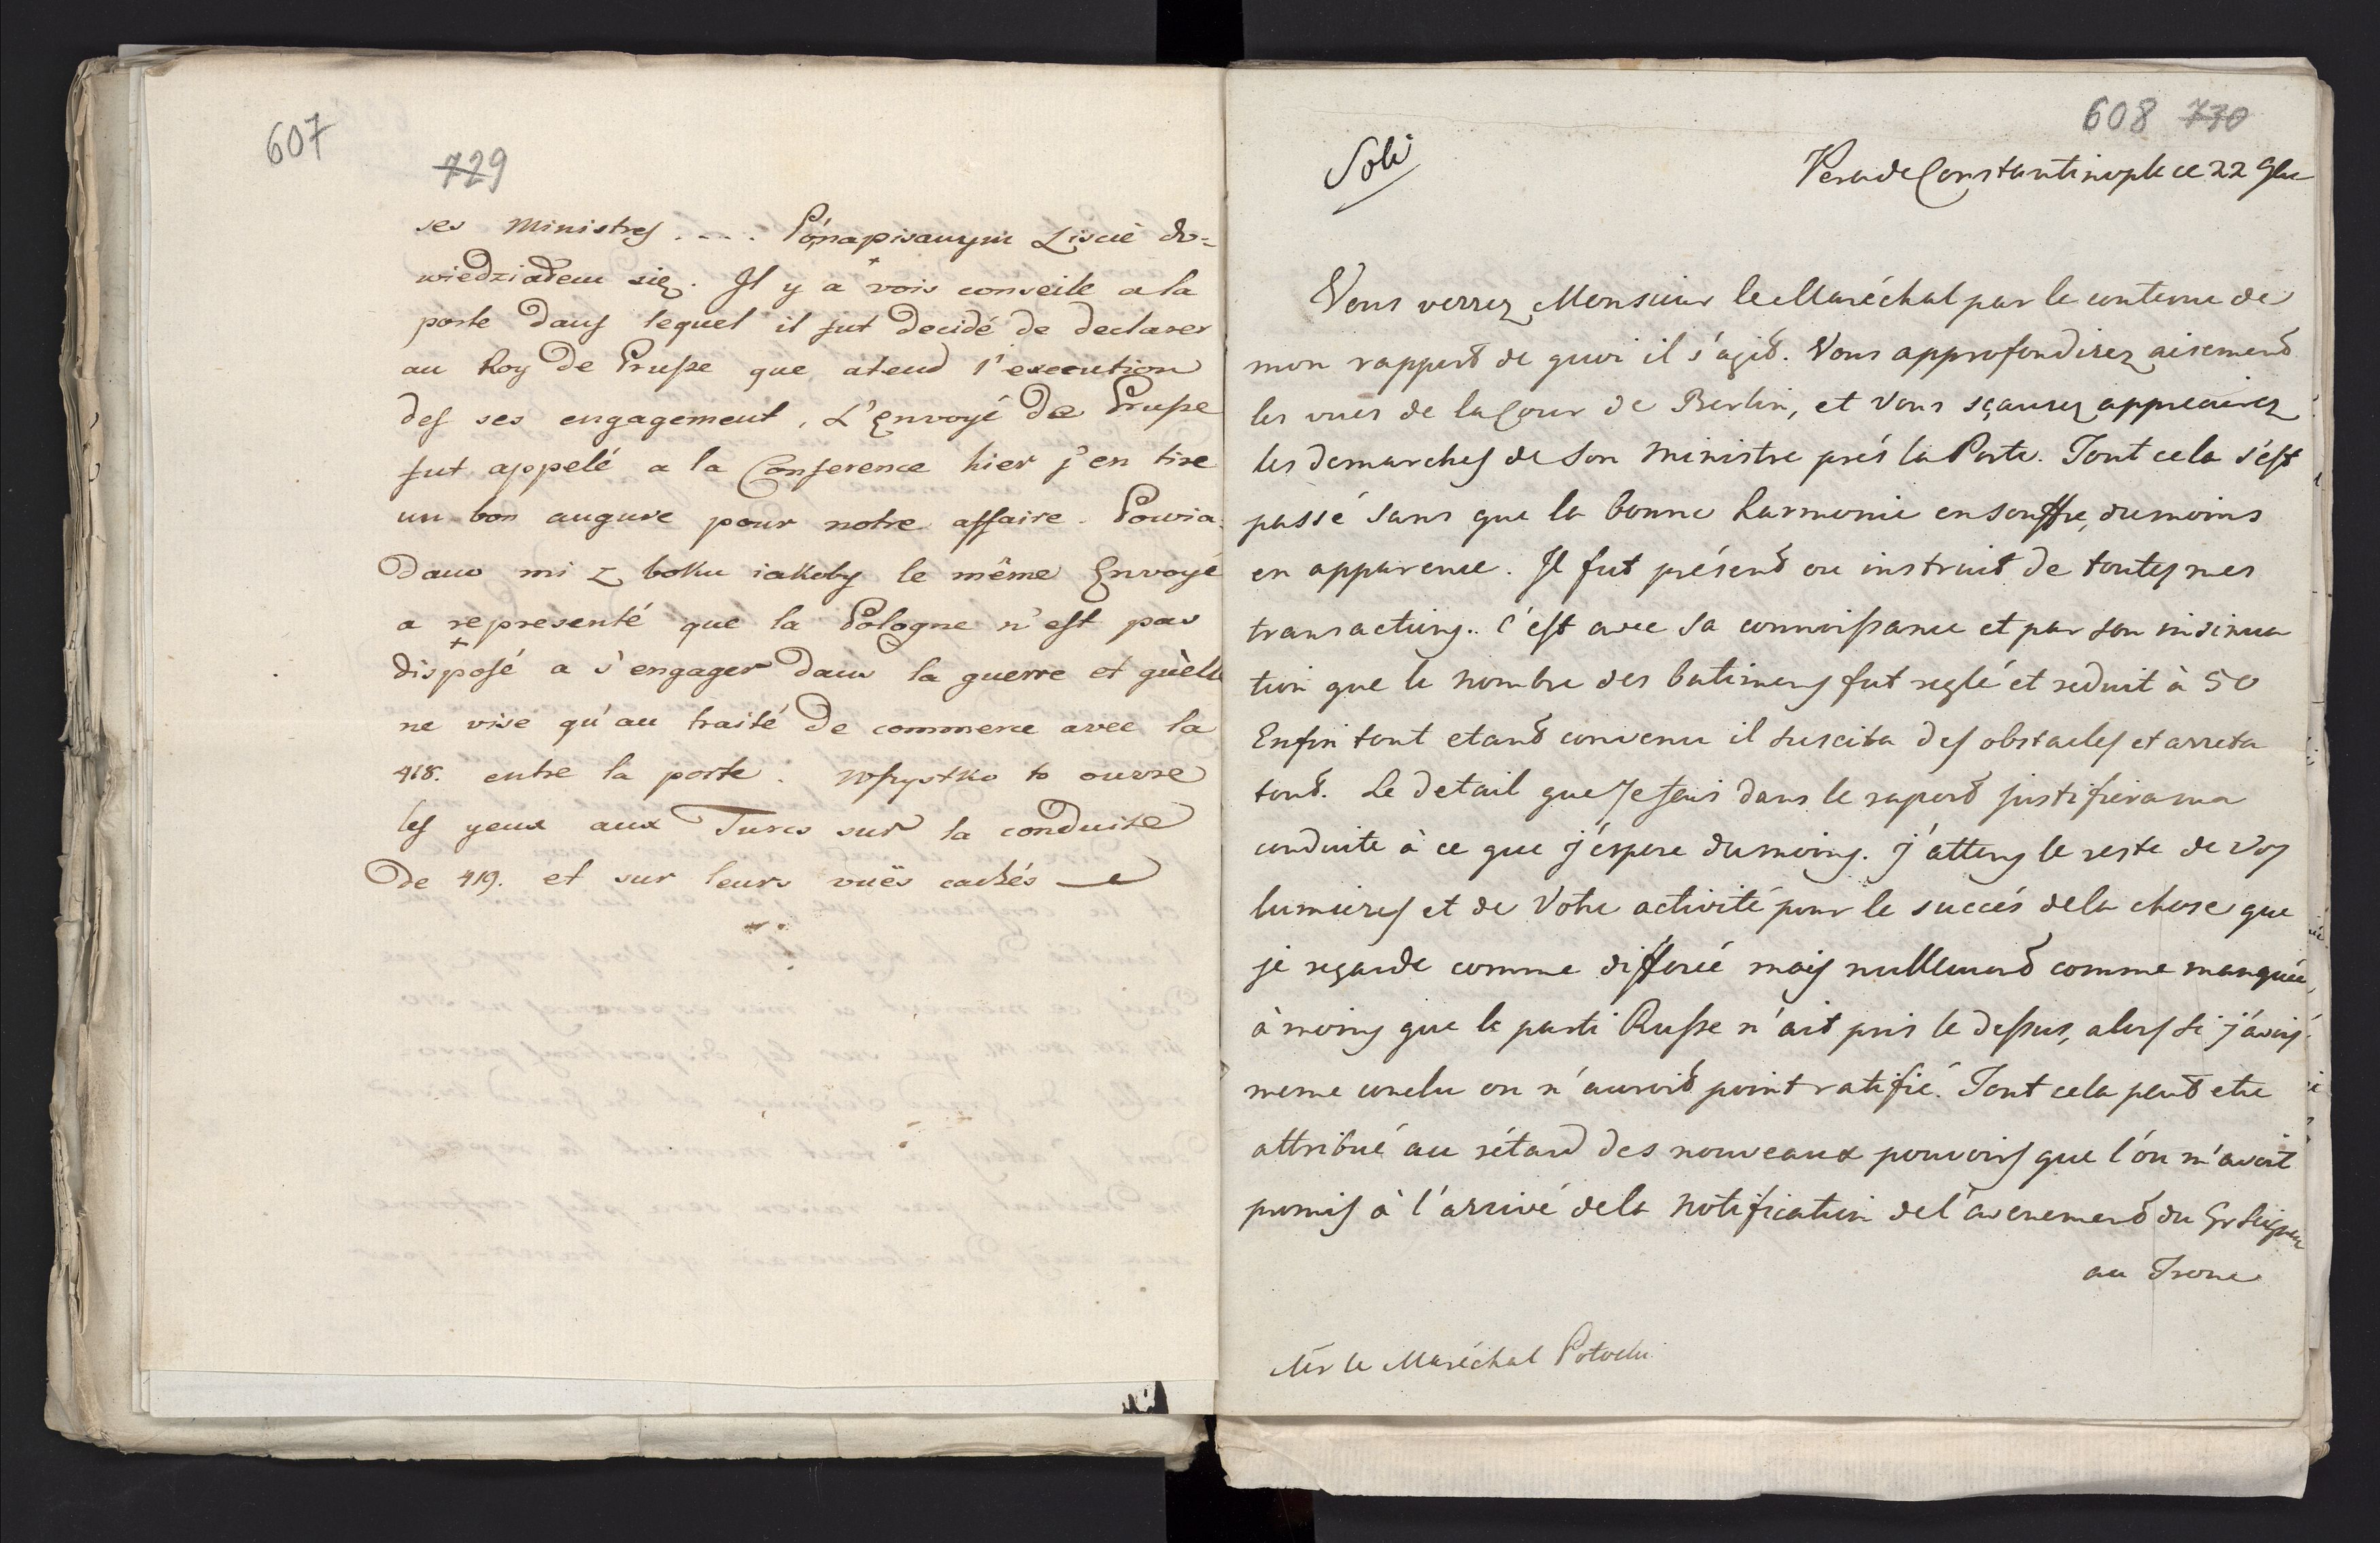 607
729
ses Ministres .... Pónapisanym Liscie do=
wiedziałem się. Il y a vois conseile a la
porte dans lequel il fut decidé de declarer
au Roy de Prusse que atend l'execution
des ses engagement, L'Envoyé de Prusse
fut appelé a la Conference hier j'en tire
un bon augure pour notre affaire. Powia
daio mi z boku iakoby le même Envoyé
a representé que la Pologne n'est pas
disposé a s'engager dans la guerre et qu'elle
ne vise qu'au traité de commerce avec la
418. entre la porte. Wszystko to ouvre
les yeux aux Turcs sur la conduite
de 419. et sur leurs vuës cachés
608 730
Soli
Pera de Constantinople ce 22 9bre
Vous verrez, Monsieur le Maréchal par le contenu de
mon rapport de quoi il s'agit. Vous approfondirez aisement
les vues de la Cour de Berlin, et Vous sçaurez apprecier
les demarches de Son Ministre prés la Porte. Tout cela s'est
passé sans que la bonne harmonie en souffre, du moins
en apparence. Il fut présent ou instruit de toutes mes
transactions. C'est avec sa connoissance et par son insinua
tion que le nombre des batimens fut reglé et reduit à 50
Enfin tout etant convenu il suscita des obstacles et arreta
tout. Le detail que Je fais dans le raport justifiera ma
conduite à ce que j'éspere du moins. j'attens le reste de Vos
lumieres et de Votre activité pour le succés de la chose que
je regarde comme differée mais nullement comme manquée
à moins que le parti Russe n'ait pris le dessus, alors si j'avois
meme conclu on n'auroit point ratifié. Tout cela peut etre
attribué au rétard des nouveaux pouvoirs que l'ón m'avoit
promis à l'arrivé de la Notification de l'avenement du Gr Seigneur
au Trone
Mr le Maréchal Potocki